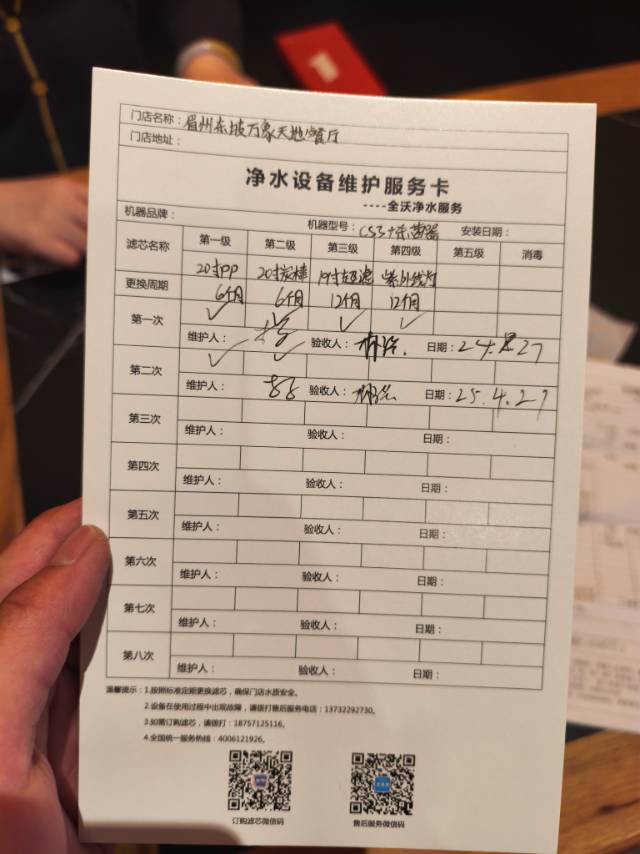 门店名称：眉州东坡万象天地餐厅
门店地址：
净水设备维护服务卡
----全沃净水服务
机器品牌： 机器型号： 安装日期：
滤芯名称 第一级 第二级 第三级 第四级 第五级 消毒
20寸PP 20寸炭棒 超滤 紫外线灯
更换周期 6个月 6个月 12个月 12个月
第一次 ✓ ✓ ✓ ✓
维护人： 验收人： 日期：24.
第二次 ✓ ✓
维护人： 验收人： 日期：25.4.27
第三次
维护人： 验收人： 日期：
第四次
维护人： 验收人： 日期：
第五次
维护人： 验收人： 日期：
第六次
维护人： 验收人： 日期：
第七次
维护人： 验收人： 日期：
第八次
维护人： 验收人： 日期：
温馨提示：1.按照标准定期更换滤芯，确保门店水质安全。
2.设备在使用过程中出现故障，请拨打售后服务电话：13732292730。
3.如需订购滤芯，请拨打：18757125116。
4.全国统一服务热线：4006121926。
订购滤芯微信码 售后服务微信码